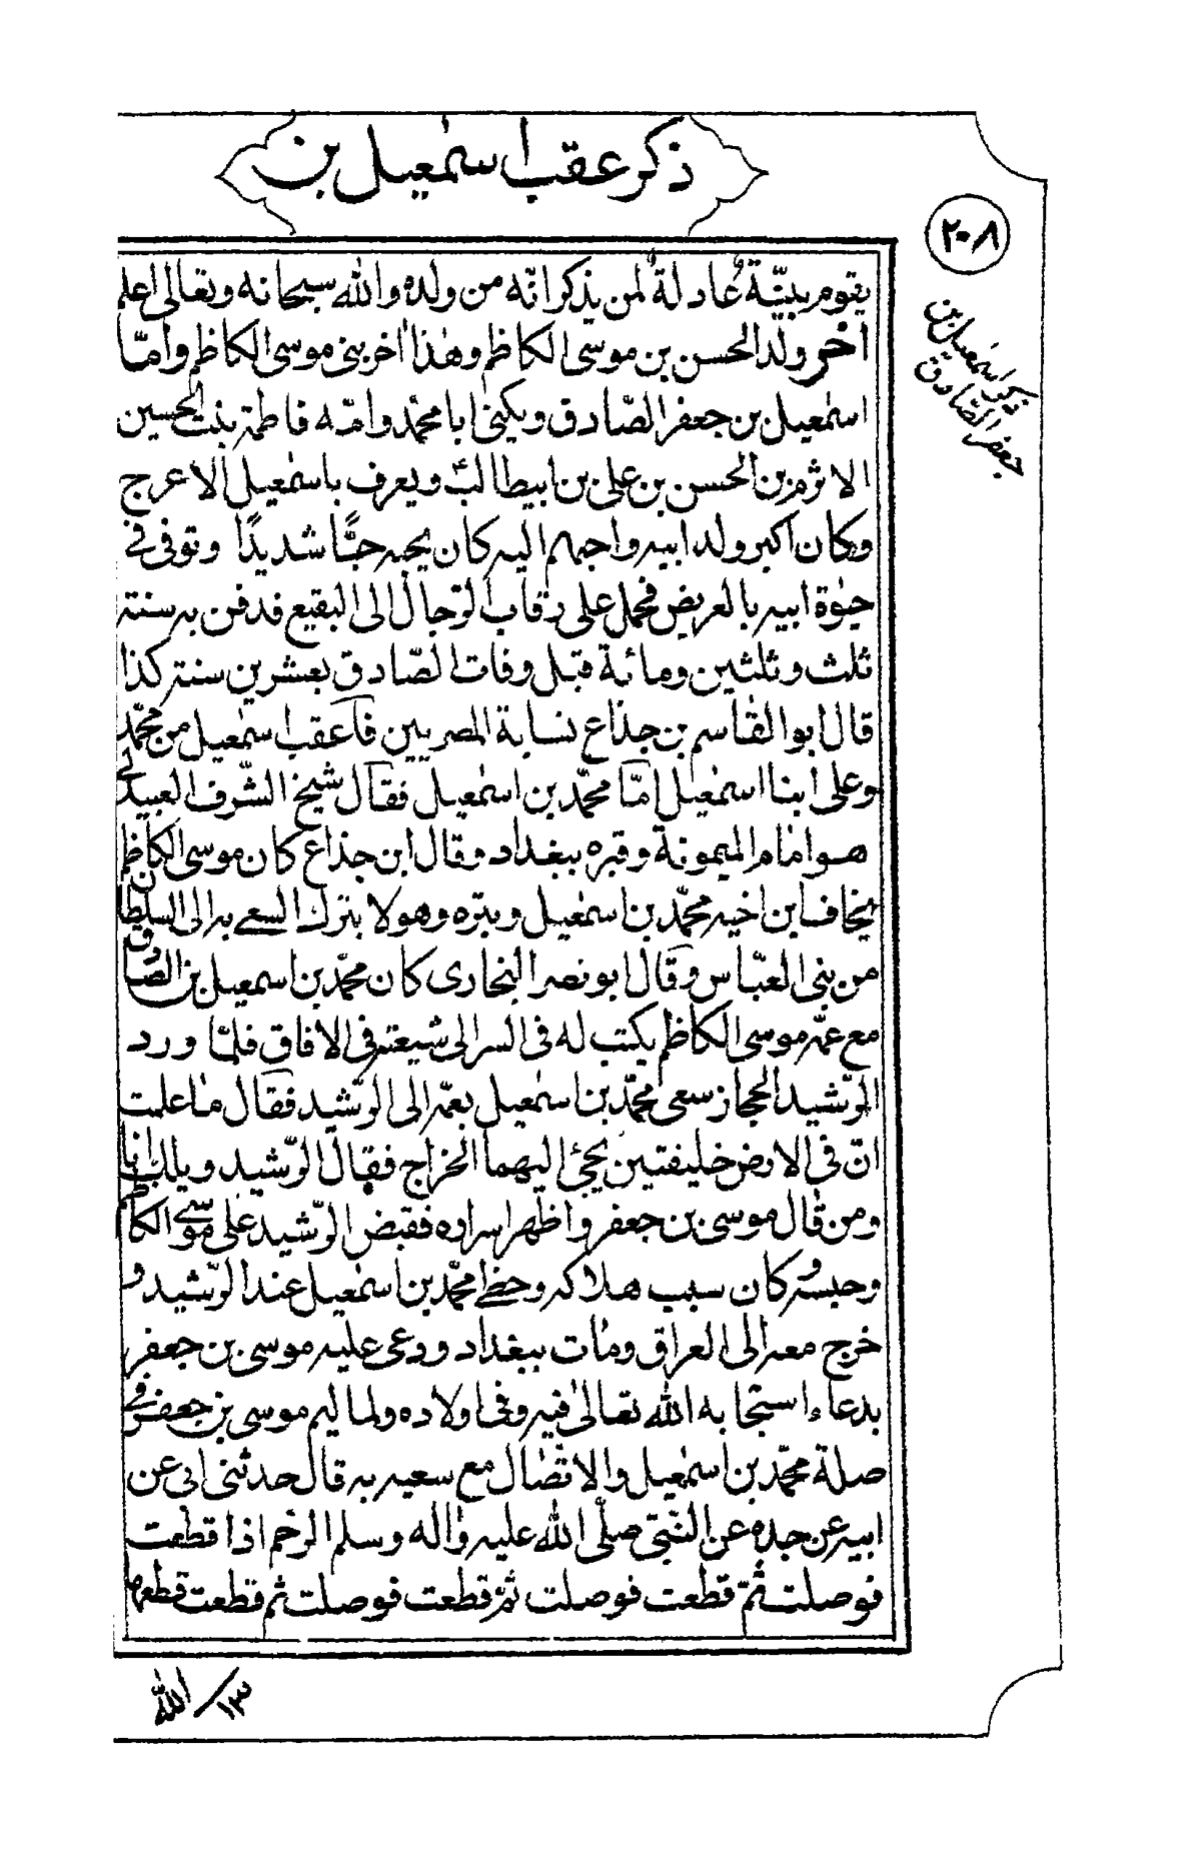 ذكر عقب اسمٰعيل بن
٢٠٨
ذكر اسمٰعيل بن
جعفر الصّادق
يقوم ببيّنة عادلة لمن يذكر انّه من ولده والله سبحانه وتعالى اعلم
اٰخر ولد الحسن بن موسى الكاظم وهٰذا اٰخر بنى موسى الكاظم وامّا
اسمٰعيل بن جعفر الصّادق ويكنى ابا محمّد وامّه فاطمة بنت الحسين
الاثرم بن الحسن بن على بن ابيطالبؑ ويعرف باسمٰعيل الاعرج
وكان اكبر ولد ابيه واحبهم اليه كان يحبه حبًّا شديدًا وتوفى فى
حيٰوة ابيه بالعريض فحمل على رقاب الرّجال الى البقيع فدفن به سنة
ثلث وثلثين ومائة قبل وفات الصّادق بعشرين سنة كذا
قال ابو القاسم بن جذاع نسابة المصريين فاعقب اسمٰعيل من محمّد
وعلى ابنا اسمٰعيل امّا محمّد بن اسمٰعيل فقال شيخ الشّرف العبيدلى
هو امام الميمونة وقبره ببغداد وقال ابن جذاع كان موسى الكاظم
يخاف ابن اخيه محمّد بن اسمٰعيل ويبرّه وهو لا يترك السعى به الى السلطان
من بنى العبّاس وقال ابو نصر البخارى كان محمّد بن اسمعيل بن الصّادق
مع عمّه موسى الكاظم يكتب له فى السر الى شيعته فى الافاق فلمّا ورد
الرّشيد الحجاز سعى محمّد بن اسمٰعيل بعمّه الى الرّشيد فقال ما علمت
انّ فى الارض خليفتين يجئ اليهما الخراج فقال الرّشيد ويلك انا
ومن قال موسى بن جعفر واظهر اسراره فقبض الرّشيد على موسى الكاظم
وحبسه وكان سبب هلاكه وحظى محمّد بن اسمٰعيل عند الرّشيد و
خرج معه الى العراق ومات ببغداد ودعى عليه موسى بن جعفر
بدعاء استجابه الله تعالىٰ فيه وفى اولاده ولما ليم موسى بن جعفر فى
صلة محمّد بن اسمٰعيل والاتّصال مع سعيه به قال حدثنى ابى عن
ابيه عن جده عن النّبىّ صلّى الله عليه واله وسلم الرحم اذا قطعت
فوصلت ثمّ قطعت فوصلت ثمّ قطعت فوصلت ثم قطعت قطعها
الله